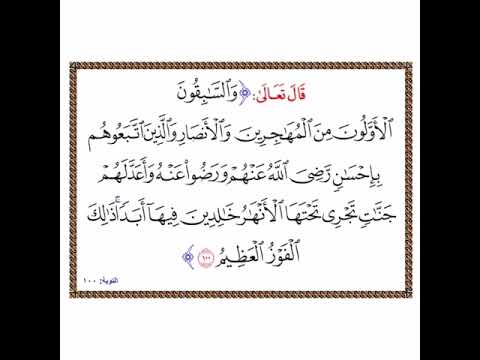 قَالَ تَعَالَىٰ: ﴿ وَٱلسَّٰبِقُونَ
ٱلْأَوَّلُونَ مِنَ ٱلْمُهَٰجِرِينَ وَٱلْأَنصَارِ وَٱلَّذِينَ ٱتَّبَعُوهُم
بِإِحْسَٰنٍ رَّضِىَ ٱللَّهُ عَنْهُمْ وَرَضُوا۟ عَنْهُ وَأَعَدَّ لَهُمْ
جَنَّٰتٍ تَجْرِى تَحْتَهَا ٱلْأَنْهَٰرُ خَٰلِدِينَ فِيهَآ أَبَدًا ۚ ذَٰلِكَ
ٱلْفَوْزُ ٱلْعَظِيمُ ١٠٠ ﴾
التوبة: ١٠٠